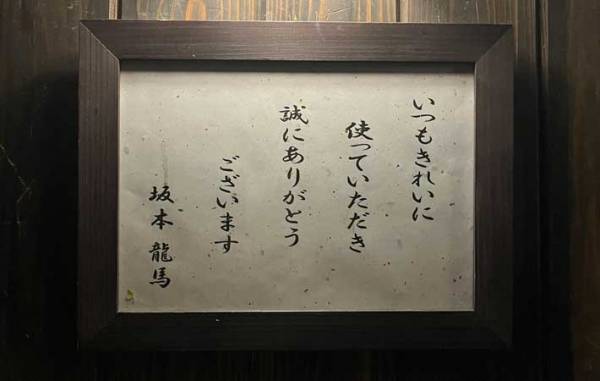 いつもきれいに
使っていただき
誠にありがとう
ございます
坂本龍馬